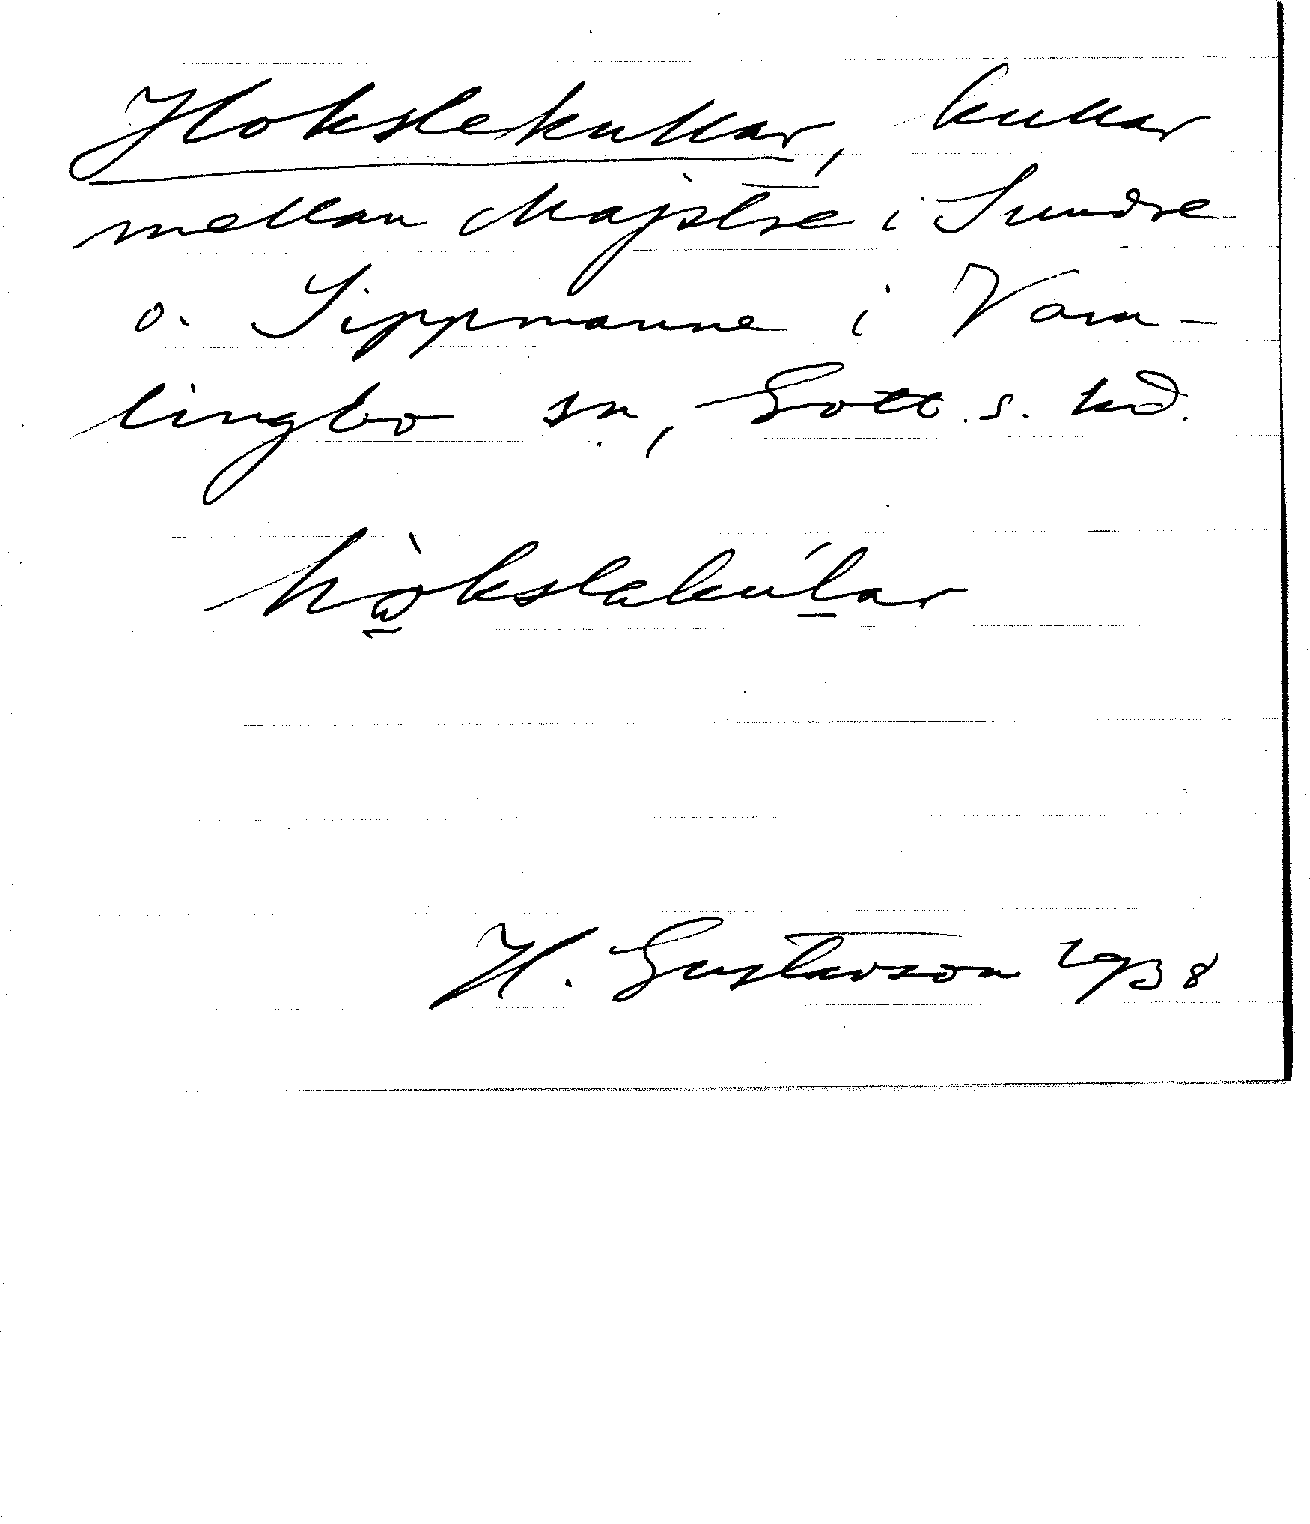 Hokslekullar, kullar
mellan Majstre i Sundre
o. Sippmanne i Vam-
lingbo sn, Gotl. s. hd.
hò̱kslakúḻar
H. Gustavson 1938